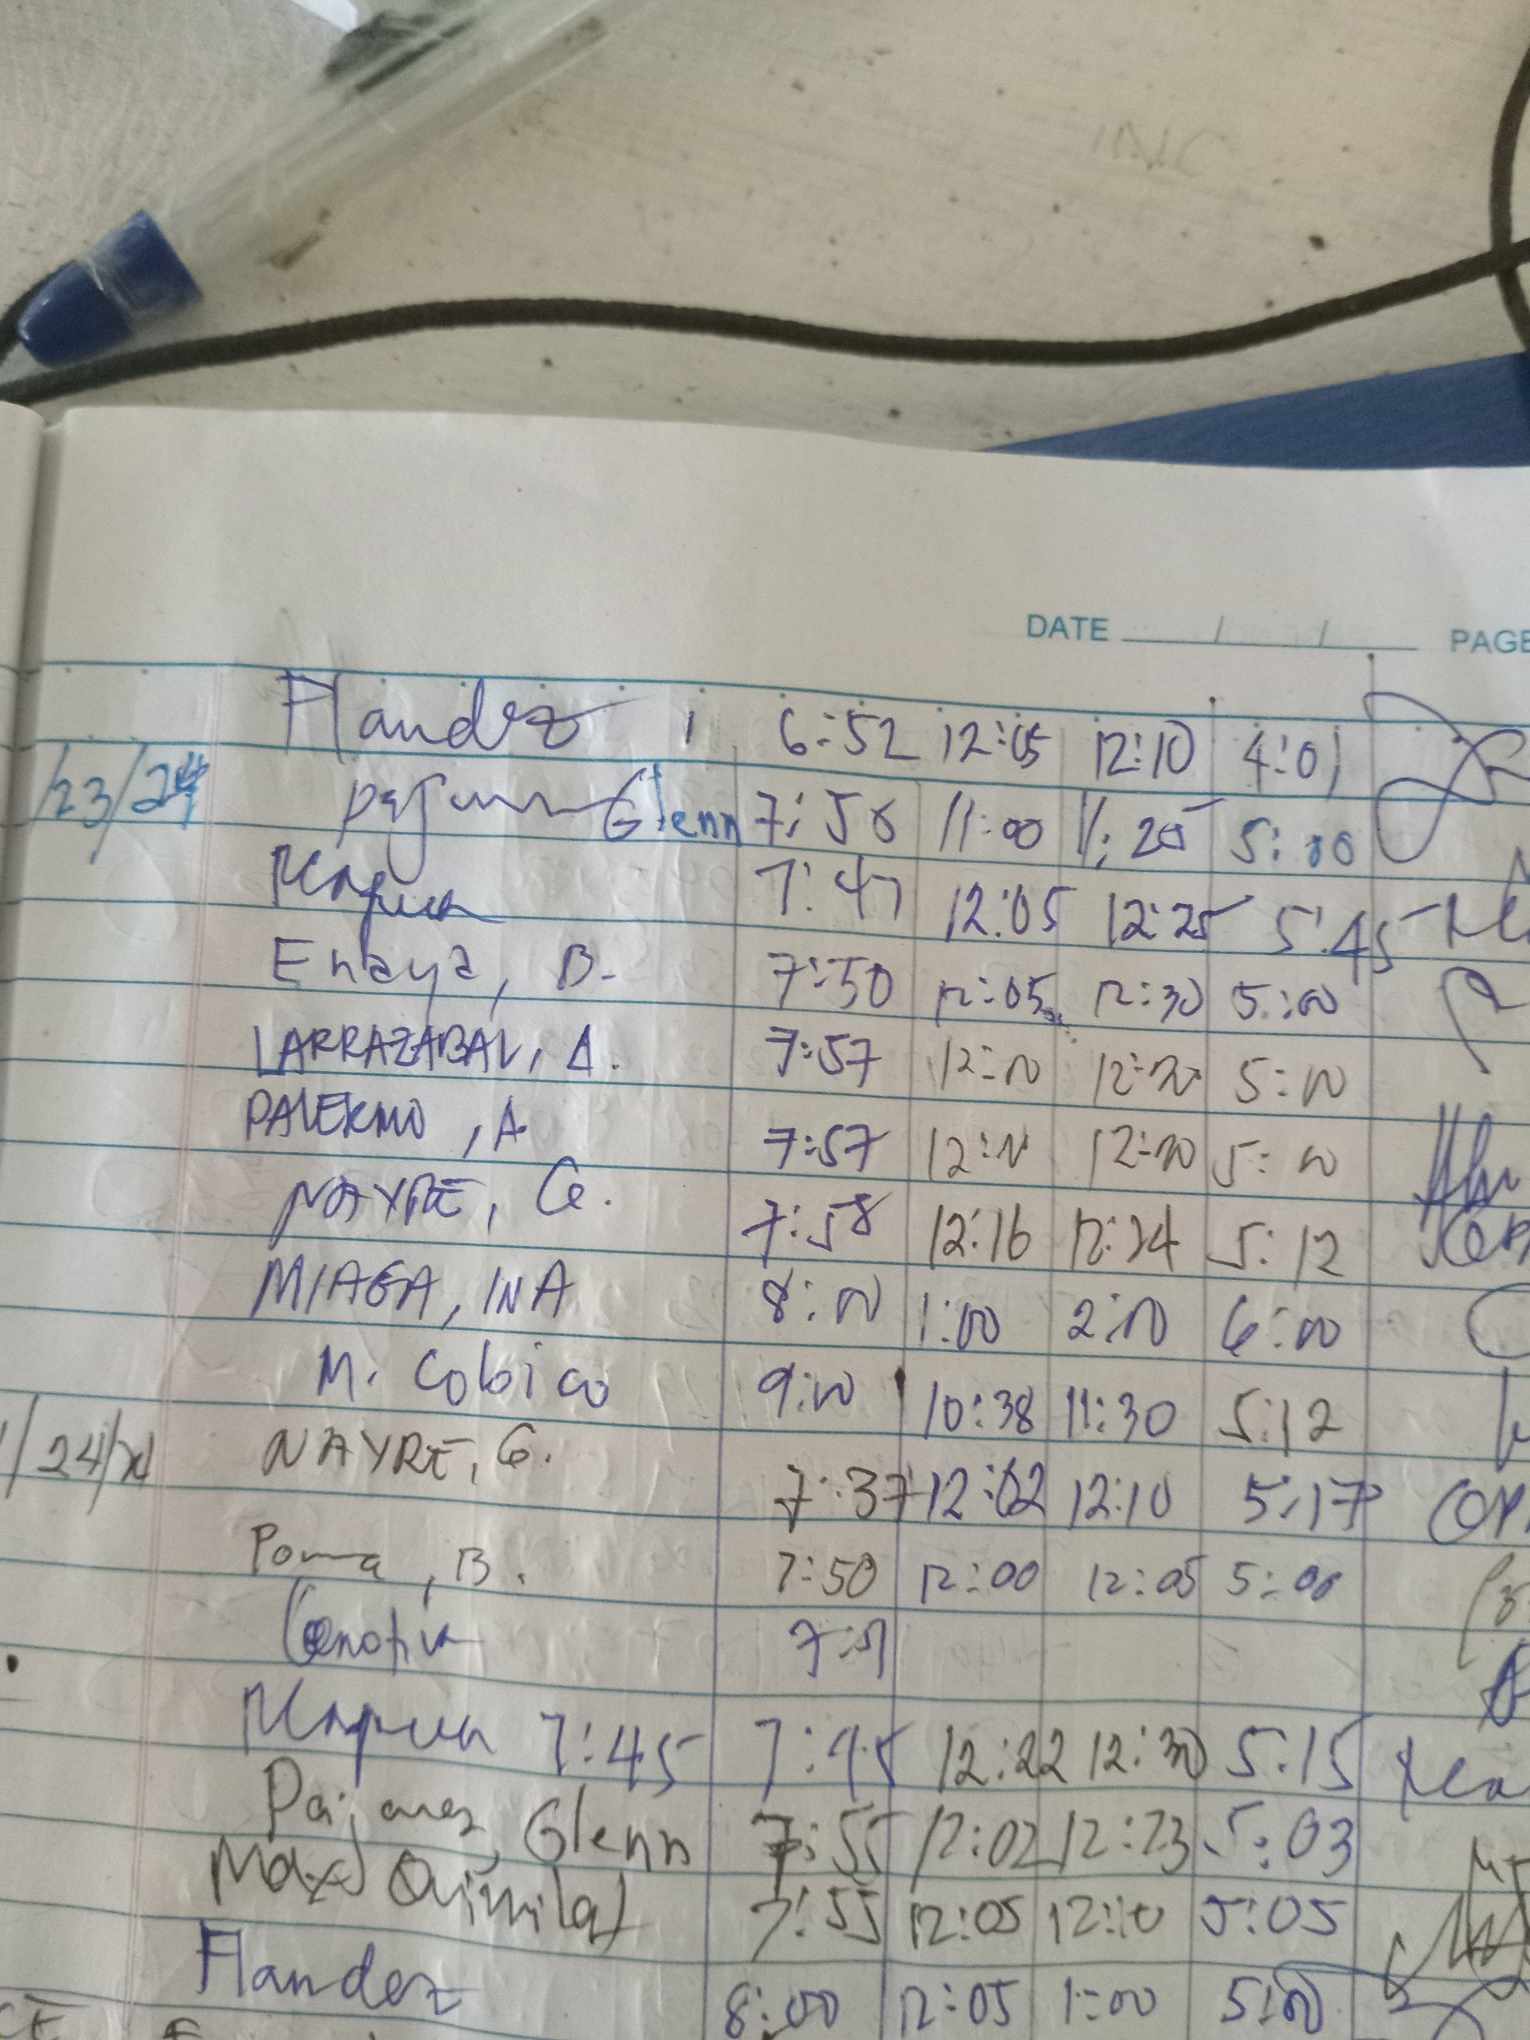 DATE / / PAGE
Flandez 6:52 12:05 12:10 4:01
/23/24 Glenn 7:56 11:00 11:20 5:00
7:47 12:05 12:25 5:45
Enaya, B. 7:50 12:05 12:30 5:00
LARRAZABAL, A. 7:57 12:00 12:20 5:00
PALERMO, A 7:57 12:00 12:20 5:00
NAYRE, G. 7:58 12:16 12:24 5:12
MIAGA, INA 8:00 1:00 2:00 6:00
M. Cobico 9:00 10:38 11:30 5:12
/24/24 NAYRE, G. 7:37 12:02 12:10 5:17
Poma, B. 7:50 12:00 12:05 5:00
7:45 7:45 12:22 12:30 5:15
Pajanez, Glenn 7:55 12:02 12:23 5:03
Max Quimilat 7:55 12:05 12:10 5:05
Flandez 8:00 12:05 1:00 5:00